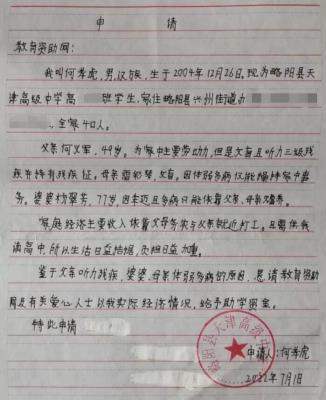 申 请
教育资助网:
我叫何孝虎,男,汉族,生于2004年12月26日,现为略阳县天
津高级中学高 班学生,家住略阳县兴州街道办
,全家4口人。
父亲何义军,49岁。为家中主要劳动力,但是文盲且听力三级残
疾并持有残疾证。母亲 ,文盲,因体弱多病仅能操持家中事
务。婆婆杨翠芳,77岁,因年迈且多病日能依靠父亲,母亲 。
家庭经济主要收入依靠父母务农与父亲就近打工。且需供我
读高中,所以生活日益拮据,负担日益加重。
鉴于父亲听力残疾,婆婆、母亲体弱多病的原因,恳请教育资助
网及有关爱心人士以我实际经济情况,给予助学 。
特此申请
略阳县天津高级中学
申请人:何孝虎
2022年7月1日